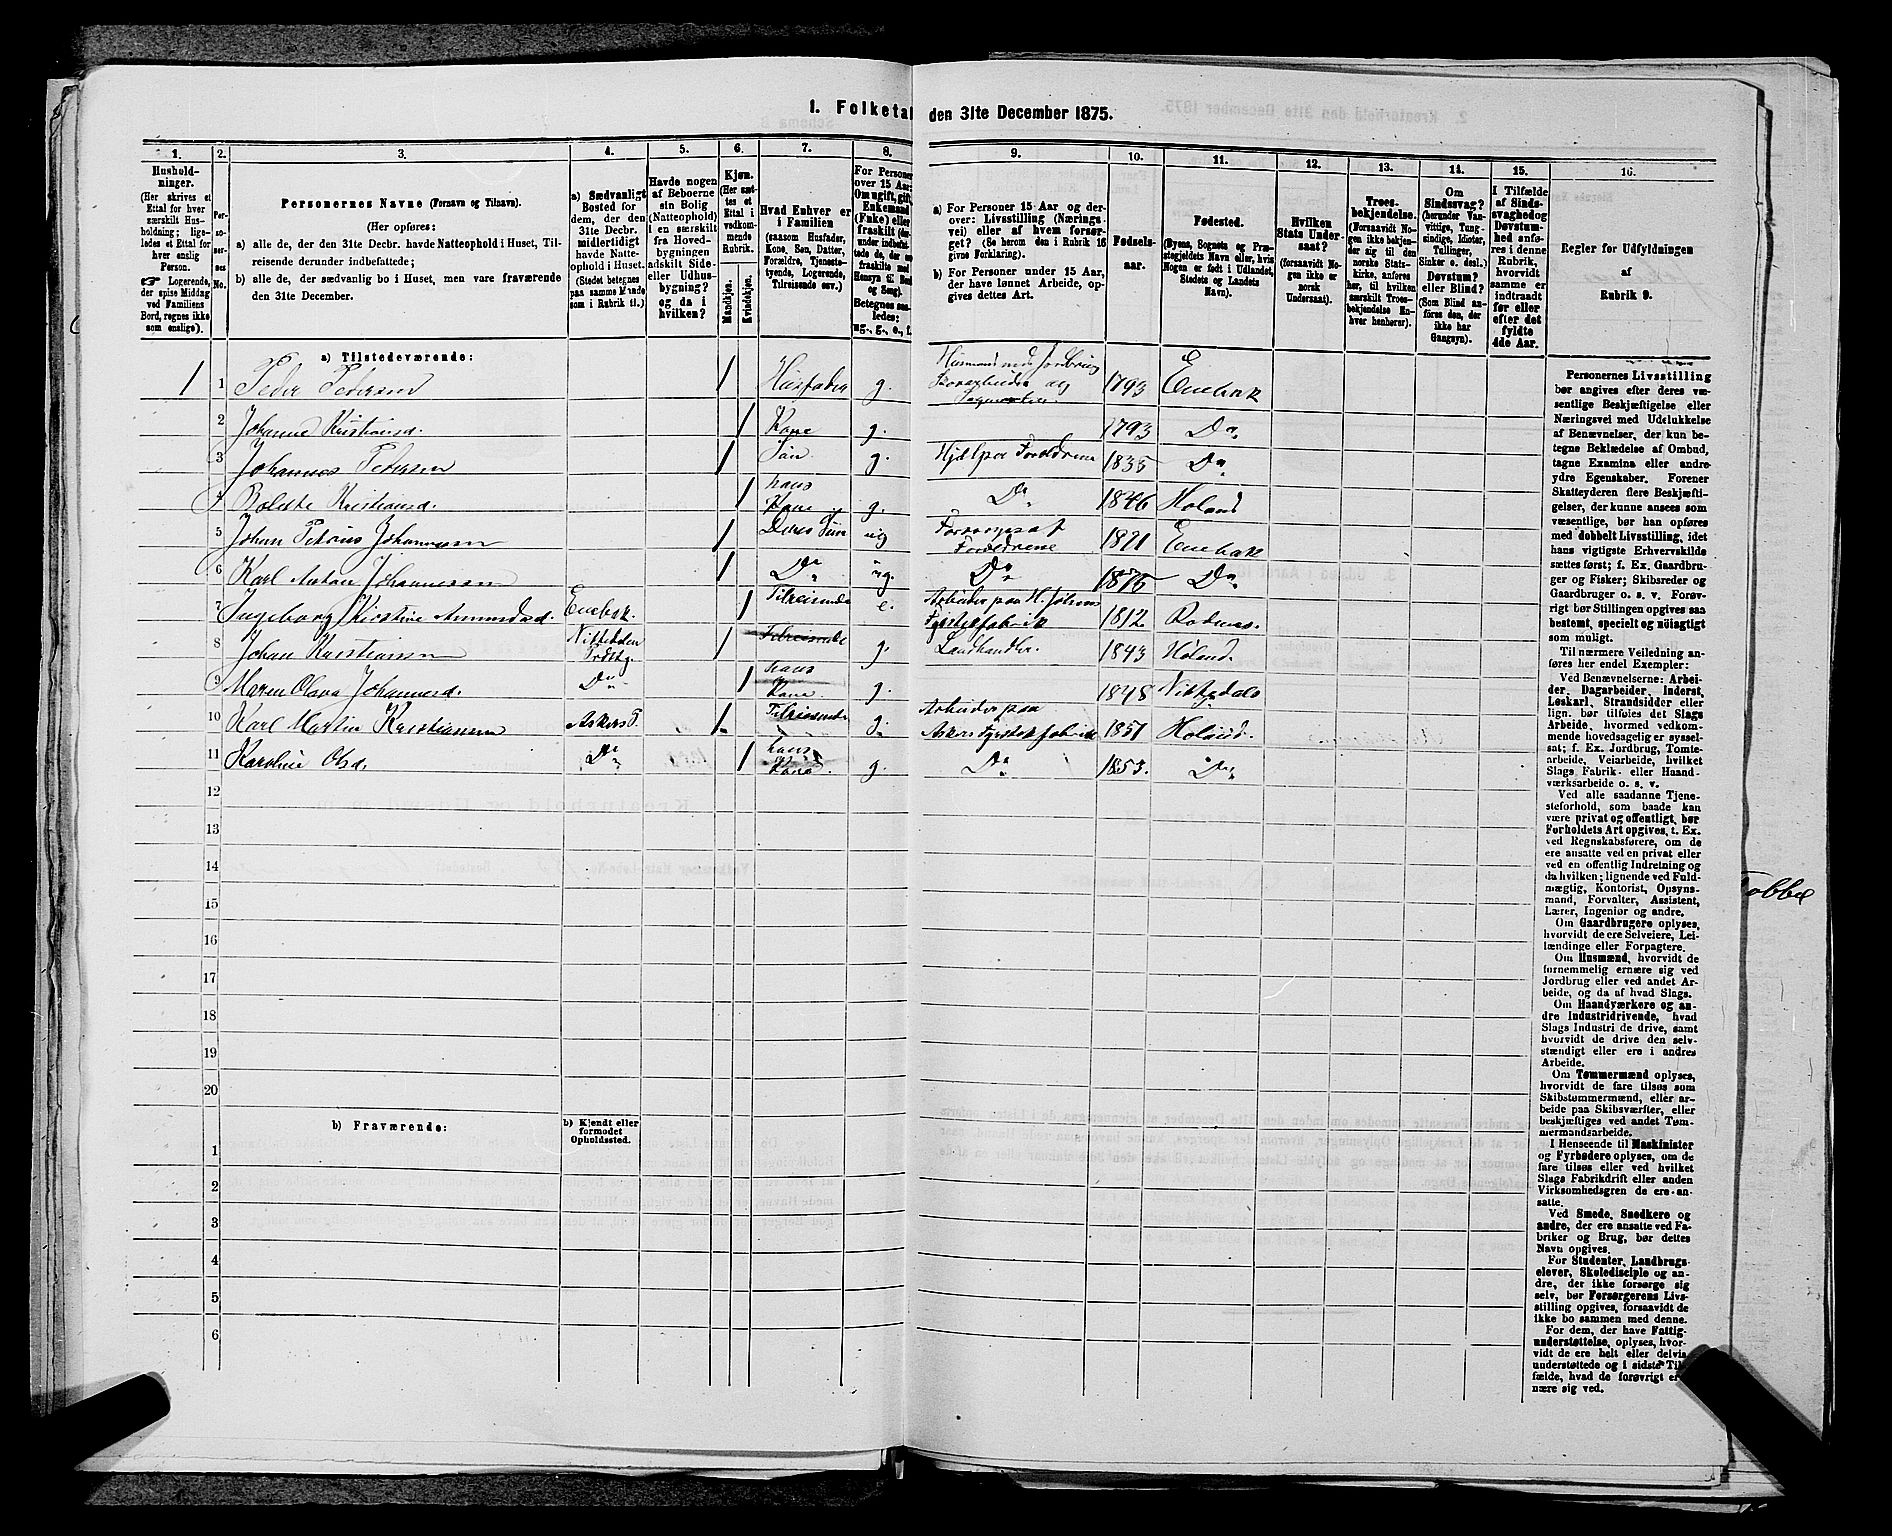 1. Folketal den 31te December 1875.
1. 2. 3. 4. 5. 6. 7. 8. 9. 10. 11. 12. 13. 14. 15. 16.
Hushold-
ninger.
(Her skrives et
Ettal for hver
særskilt Hus-
holdning; lige-
ledes et Ettal for
hver enslig
Person.
☞ Logerende,
der spise Middag
ved Familiens
Bord, regnes ikke
som enslige).
Per-
so-
ner-
nes
No.
Personernes Navne (Fornavn og Tilnavn).
(Her opføres:
a) alle de, der den 31te Decbr. havde Natteophold i Huset, Til-
reisende derunder indbefattede;
b) alle de, der sædvanlig bo i Huset, men vare fraværende
den 31te December.
a) Sædvanligt
Bosted for
dem, der den
31te Decbr.
midlertidigt
havde Natte-
ophold i Huset.
(Stedet betegnes
paa samme Maade
som i Rubrik 11.)
Havde nogen
af Beboerne
sin Bolig
(Natteophold)
i en særskilt
fra Hoved-
bygningen
adskilt Side-
eller Udhus-
bygning?
og da i
hvilken?
Kjøn.
(Her sæt-
tes et
Ettal i
vedkom-
mende
Rubrik.
Mandkjøn.
Kvindekjøn.
Hvad Enhver er
i Familien
(saasom Husfader,
Kone, Søn, Datter,
Forældre, Tjeneste-
tyende, Logerende,
Tilreisende osv.)
For Personer
over 15 Aar:
Om ugift, gift,
Enkemand
(Enke) eller
fraskilt
Betegnes saa-
ledes:
ug., g., e., f.
a) For Personer 15 Aar og der-
over: Livsstilling (Nærings-
vei) eller af hvem forsør-
get? (Se herom den i Rubrik 16
givne Forklaring).
b) For Personer under 15 Aar,
der have lønnet Arbeide, op-
gives dettes Art.
Fødsels-
aar.
Fødested.
(Byens, Sognets og Præ-
stegjeldets Navn eller, hvis
Nogen er født i Udlandet,
Stedets og Landets
Navn).
Hvilken
Stats Under-
saat?
(forsaavidt No-
gen ikke er
norsk
Undersaat).
Troes-
bekjendelse.
(Forsaavidt No-
gen ikke bekjen-
der sig til den
norske Stats-
kirke, anføres
her, til hvilken
særskilt Troes-
bekjendelse En-
hver henhører).
Om
Sindssvag?
(herunder Van-
vittige, Tung-
sindige, Idioter,
Tullinger,
Sinker o. desl.)
Døvstum?
eller Blind?
(Som Blind an-
føres den, der
ikke har
Gangsyn).
I Tilfælde
af Sinds-
svaghed og
Døvstum-
hed anfø-
res i denne
Rubrik,
hvorvidt
samme er
indtraadt
før eller
efter det
fyldte
4de Aar.
Regler for Udfyldningen
af
Rubrik 9.
a) Tilstedeværende:
1 1 Peder Pedersen 1 Husfader g. Husmand med Jordbrug 1793 Enebak
2 Johanne Kristiansd. 1 Kone g. 1793 Do
3 Johannes Pedersen 1 Søn g. Hjælper Foreldrene 1835 Do
4 Kristiansd. 1 hans Kone g. Do 1846 Høland
5 Johan Johannesen 1 Deres Søn ug Forsørges af Foreldrene 1871 Enebak
6 Karl Anton Johannesen 1 Do ug. Do 1875 Do
7 Ingeborg Kirstine Amundsd. Enebak. 1 Tilreisende e. Arbeider paa 1812 Rødenes.
8 Johan Kristiansen Nittedalen Prdstg. 1 Tilreisende g. Landhandler. 1843 Høland.
9 Maren Olava Johannesd. Do 1 hans Kone g. 1848 Nittedals
10 Karl Martin Kristiansen Askers P. 1 Tilreisende g. Arbeider paa Askers fabrik 1851 Høland.
11 Karoline Olsd. Do 1 hans Kone g. Do 1853. Do
12
13
14
15
16
17
18
19
20
b) Fraværende:
b) Kjendt eller
formodet
Opholdssted.
1
2
3
4
5
6
Personernes Livsstilling
bør angives efter deres væ-
sentlige Beskjæftigelse eller
Næringsvei med Udelukkelse
af Benævnelser, der kun be-
tegne Beklædelse af Ombud,
tagne Examina eller andre
ydre Egenskaber. Forener
Skatteyderen flere Beskjæfti-
gelser, der kunne ansees som
væsentlige, bør han opføres
med dobbelt Livsstilling, idet
hans vigtigste Erhvervskilde
sættes først; f. Ex. Gaardbru-
ger og Fisker; Skibsreder og
Gaardbruger o. s. v. Forøv-
rigt bør Stillingen opgives saa
bestemt, specielt og nøiagtigt
som muligt.
Til nærmere Veiledning an-
føres her endel Exempler:
Ved Benævnelserne: Arbei-
der, Dagarbeider, Inderst,
Løskarl, Strandsidder eller
lign. bør tilføies det Slags
Arbeide, hvormed vedkom-
mende hovedsagelig er syssel-
sat; f. Ex. Jordbrug, Tomte-
arbeide, Veiarbeide, hvilket
Slags Fabrik- eller Haand-
værksarbeide o. s. v.
Ved alle saadanne Tjene-
steforhold, som baade kan
være privat og offentligt, bør
Forholdets Art opgives, t. Ex.
ved Regnskabsførere, om de
ere ansatte ved en privat eller
ved en offentlig Indretning og
da hvilken; lignende ved Fuld-
mægtig, Kontorist, Opsyns-
mand, Forvalter, Assistent,
Lærer, Ingeniør og andre.
Om Gaardbrugere oplyses,
hvorvidt de ere Selveiere, Lei-
lændinge eller Forpagtere.
Om Husmænd, hvorvidt de
fornemmelig ernære sig ved
Jordbrug eller ved andet Ar-
beide, og da af hvad Slags.
Om Haandværkere og an-
dre Industridrivende, hvad
Slags Industri de drive, samt
hvorvidt de drive den selv-
stændigt eller ere i andres
Arbeide.
Om Tømmermænd oplyses,
hvorvidt de fare tilsøs som
Skibstømmermænd, eller ar-
beide paa Skibsværfter, eller
beskjæftiges ved andet Tøm-
mermandsarbeide.
I Henseende til Maskinister
og Fyrbødere oplyses, om de
fare tilsøs eller ved hvilket
Slags Fabrikdrift eller anden
Virksomhedsgren de ere an-
satte.
Ved Smede, Snedkere og
andre, der ere ansatte ved Fa-
briker og Brug, bør dettes
Navn opgives.
For Studenter, Landbrugs-
elever, Skoledisciple og an-
dre, der ikke forsørge sig
selv, bør Forsørgerens Livs-
stilling opgives, forsaavidt de
ikke bo sammen med denne.
For dem, der have Fattig-
understøttelse, oplyses, hvor-
vidt de ere helt eller delvis
understøttede og i sidste Til-
fælde, hvad de forøvrigt er-
nære sig ved.